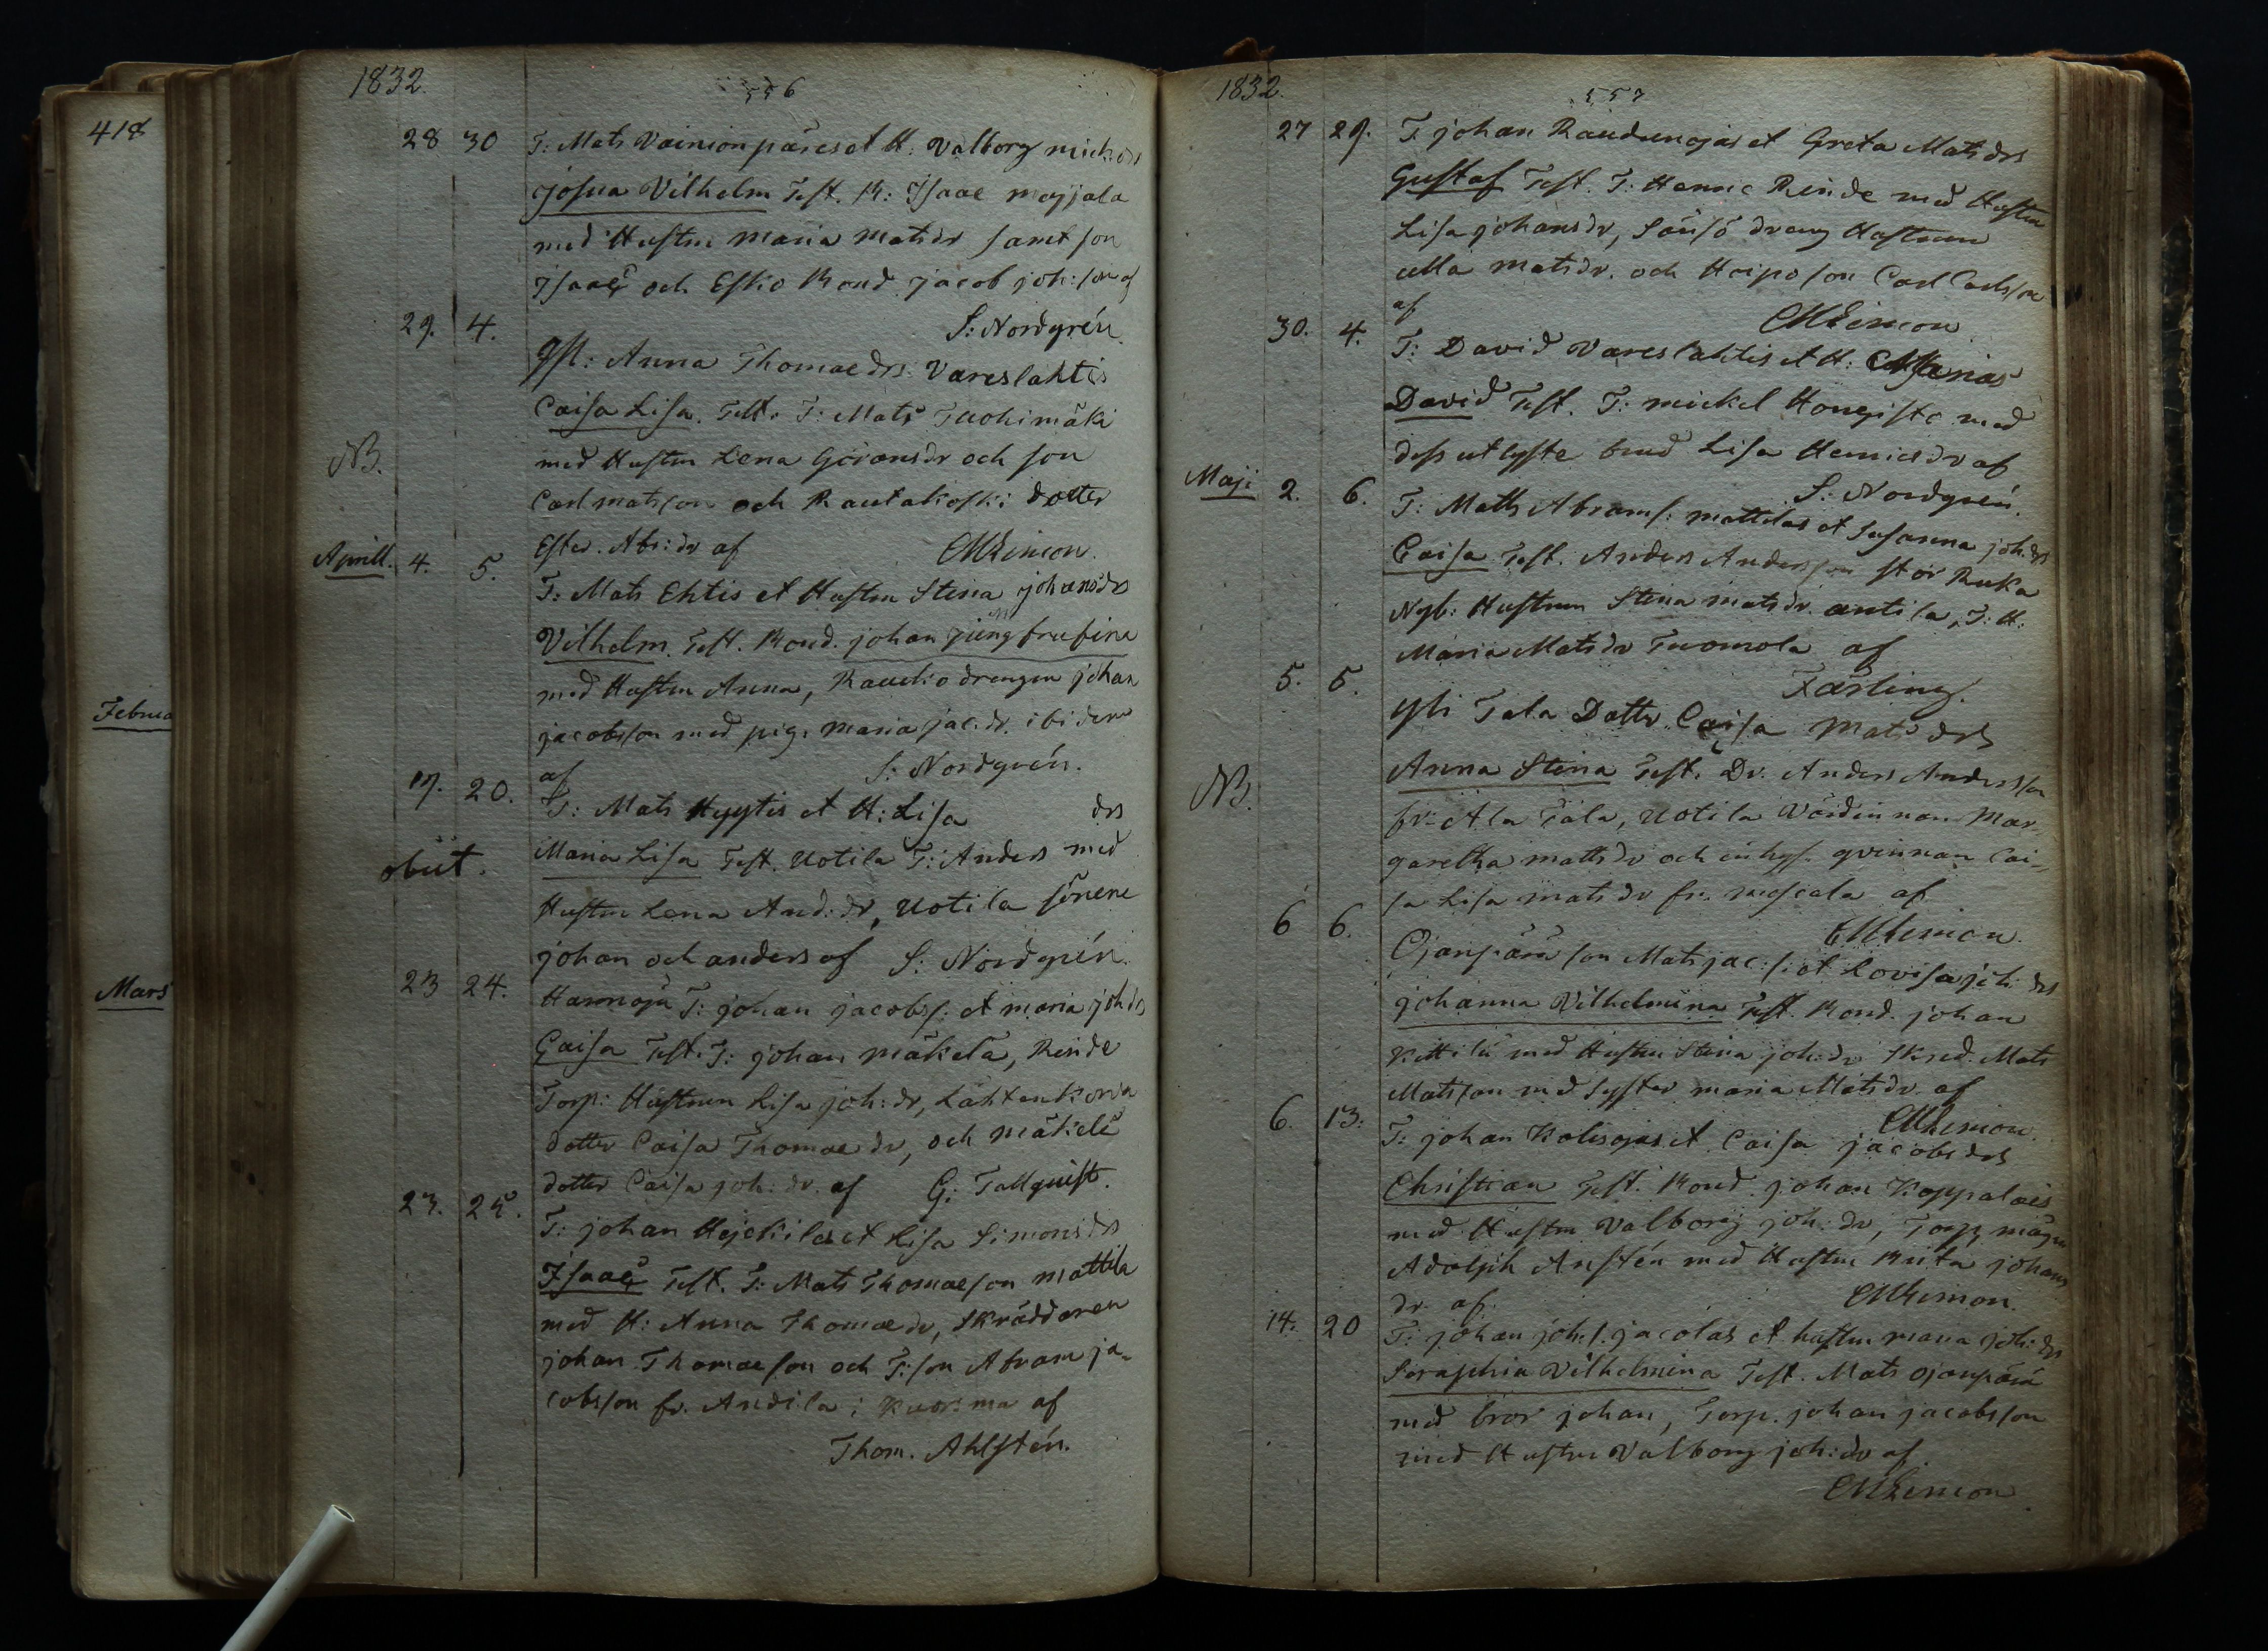 418
Februa
Mars
1832.
556
28 30 T: Mats Vainionpäres et H: Valborg mick: drs
Josua Vilhelm Test. B: Isaac mayjala
med Hustru Maria Matsdr samt son
Isaac och Esko Bond Jacob Joh:son af
S: Nordgrén.
29. 4. Anna Thomaedrs Vareslahtis
NB.
Caisa Lisa. Test. T: Mats Tuohimäki
med Hustru Lena Göransdr och son
Carl matsson och Rautakoski dotter
Ester. Abr:dr af CMLimon.
Aprill. 4. 5. T: Mats Ehtis et Hustru Stina johansdrs
Vilhelm. Test. Bond. johan
med Hustru Anna, Raukio drengen johan
jacobsson med pig. maria jac:dr. ibidem
af S: Nordgrén.
17. 20. T: Mats Hyytis et H: Lisa drs
obiit.
Maria Lisa Test. Uotila T: Anders med
Hustru Lena And:dr, Uotila sönerne
johan och anders af S: Nordgrén.
23 24. Harmoja T: johan jacobs: et maria joh:drs
Caisa Test. T: johan mäkelä, Rinde
Torp: Hustrun Lisa joh:dr, Lähtenkorva
dotter Caisa Thomaedr, och mäkelä
dotter Caisa joh:dr. af G: Tallquist.
23. 25. T: johan Hejckilas et Lisa Simonsdrs
Isaac Test. T: Mats Thomaeson mattila
med H: Anna Thomaedr, Skräddaren
johan Thomaeson och T:son Abram ja-
cobsson fr. Andila i Kuorsma af
Thom. Ahlstén.
1832.
557
27 29. T. johan Raudunojas et Greta Matsdrs
Gustaf Test. T: Henric Rinde med Hustru
Lisa johansdr, dreng Hustrun
ulla matsdr. och Heipo son Carl Carlsson
af CMLimon
30. 4. T: David Vareslahtis et H:
David Test. T: mickel Hongisto med
dess utlyste brud Lisa Henricsdr af
S: Nordgrén.
Maji 2. 6. T: Matts Abrams: mattilas et Susanna joh:drs
Caisa Test. Anders Andersson stor Ruka
Nyb: Hustrun Stina matsdr. antila, T: H.
Maria Matsdr Tuomola af
Färling.
5. 5. Tala Dotter. Caisa Matsdrs
NB.
Anna Stina Test. Dr. Anders Andersson
fr: Ala Tala, Uotila Värdinnan Mar-
garetha mattsdr och inhys. qvinnan Cai-
sa Lisa matsdr fr. moscala af
CMLimon.
6 6. Ojanpärä son Mats jac:s: et Lovisa joh:drs
johanna Vilhelmina Test. Bond. johan
Kittilä med Hustru Stina joh:dr Skred. Mats
Matsson med Syster maria Matsdr. af
CMLimon.
6. 13. T: johan Kolisojas et Caisa jacobsdrs
Christian Test. Bond. johan Koppalais
med Hustru Valborg joh:dr, Torp, mågen
Adolph Ahlstén med Hustru Brita johans
dr. af. CMLimon.
14. 20 T: johan joh:s. jacolas et hustru maria joh:drs
Seraphia Vilhelmina Test. Mats ojanpärä
med bror johan, Torp. johan jacobsson
med Hustru Valborg joh:dr af
CMLimon